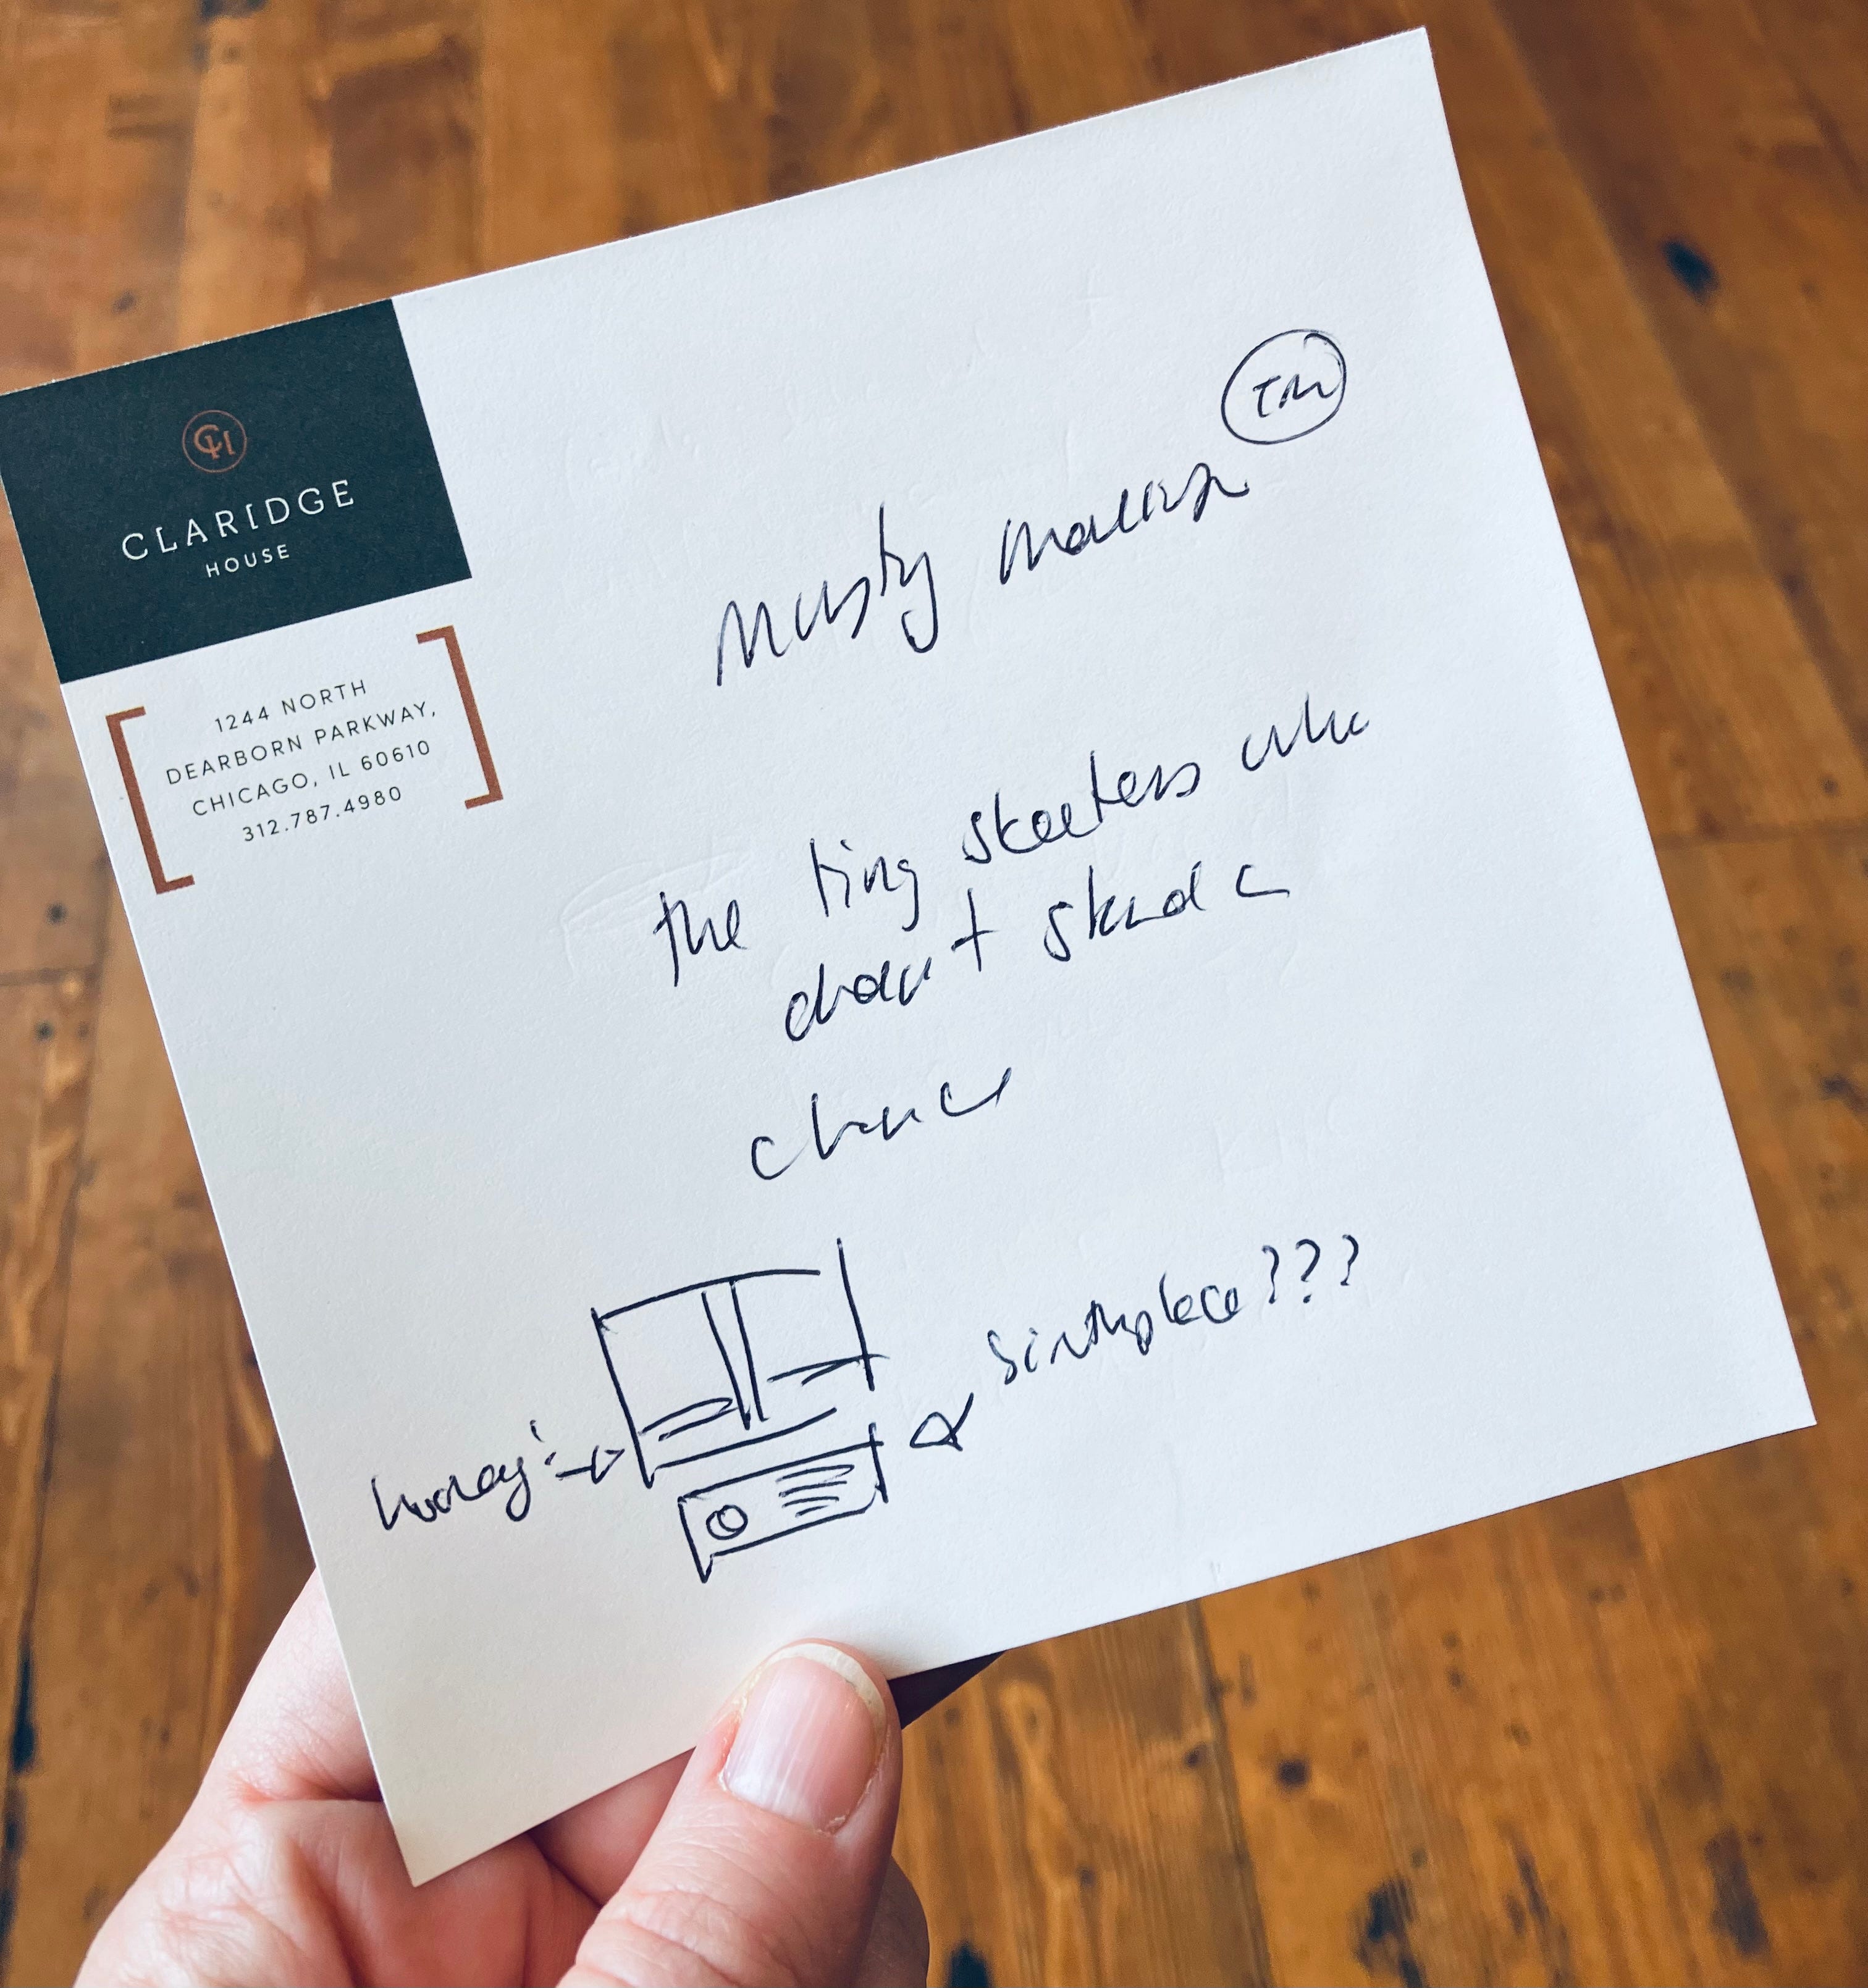 CH
CLARIDGE
HOUSE
1244 NORTH
DEARBORN PARKWAY,
CHICAGO, IL 60610
312.787.4980
TM
Musty
the skeeters who
don't stand a
chance
birthplace???